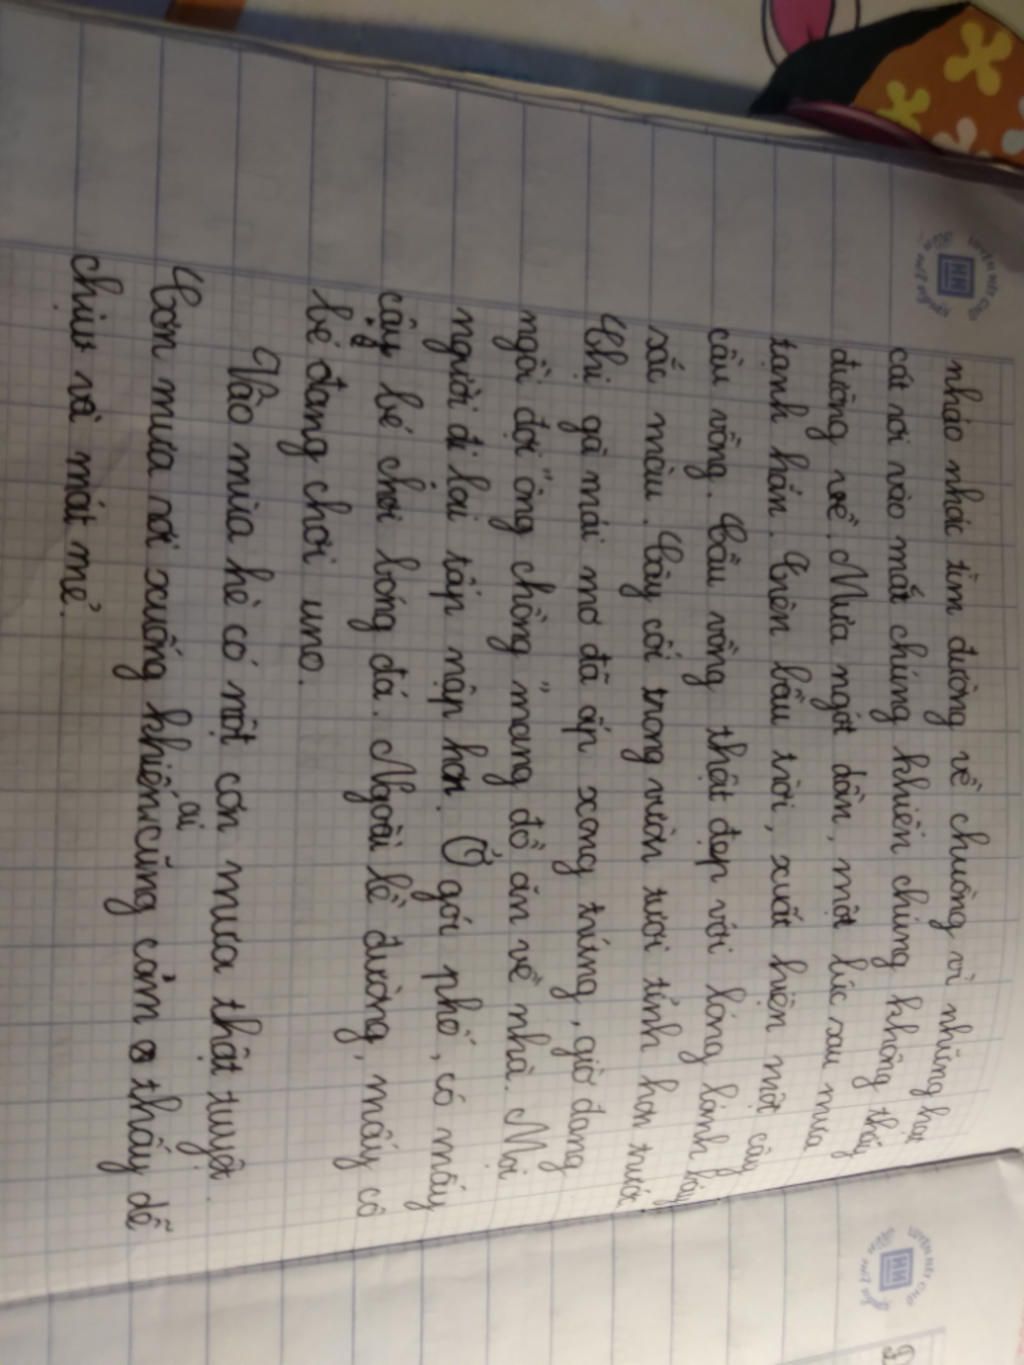 nháo nhác tìm đường về chuồng vì những hạt
cát rơi vào mắt chúng khiến chúng không thấy
đường về. Mưa ngớt dần, một lúc sau mưa
tạnh hẳn. Trên bầu trời, xuất hiện một cây
cầu vồng. Cầu vồng thật đẹp với lóng lánh bảy
sắc màu. Cây cối trong vườn tươi tỉnh hơn trước.
Chị gà mái mơ đã ấp xong trứng, giờ đang
ngồi đợi "ông chồng" mang đồ ăn về nhà. Mọi
người đi lại tấp nập hơn. Ở gói phố, có mấy
cậu bé chơi bóng đá. Ngoài lề đường, mấy cô
bé đang chơi uno.
Vào mùa hè có một cơn mưa thật tuyệt.
Cơn mưa rơi xuống khiến ai cũng cảm thấy dễ
chịu và mát mẻ.
LUYỆN NÉT CHỮ